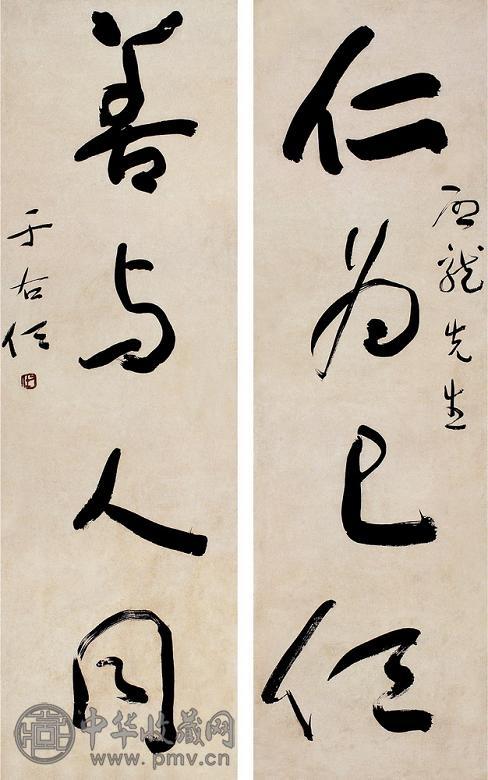 仁為己任
龍先生
善與人同
于右任
中华收藏网
www.pmv.cn